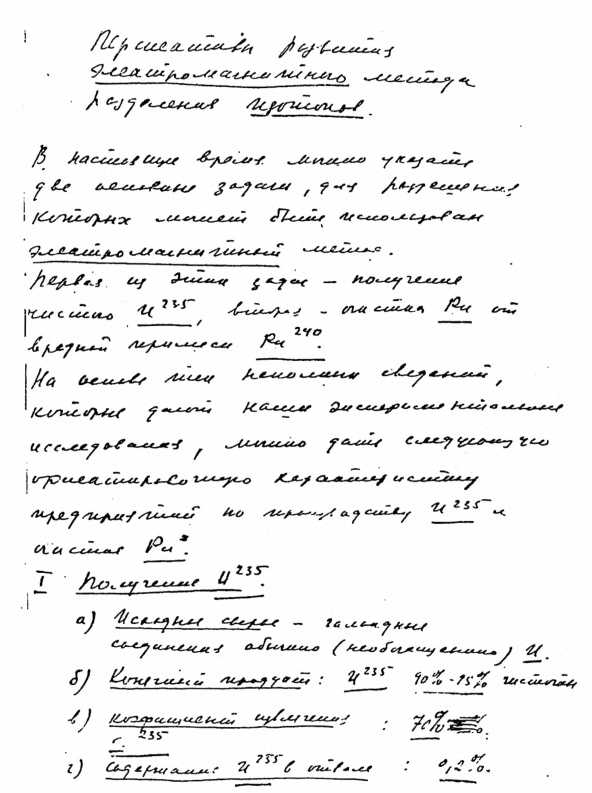 Перспективы развития
электромагнитного метода
разделения изотопов.
В настоящее время можно указать
две основные задачи, для разрешения
которых может быть использован
электромагнитный метод.
Первая из этих задач – получение
чистого U²³⁵, вторая – очистка Pu от
вредной примеси Pu²⁴⁰.
На основе тех неполных сведений,
которые дают наши экспериментальные
исследования, можно дать следующую
ориентировочную характеристику
предприятий по производству U²³⁵ и
очистке Pu.
I Получение U²³⁵.
а) Исходное сырье – галоидные
соединения обычного (необогащенного) U.
б) Конечный продукт: U²³⁵ 90%-95% чистоты
в) Коэффициент извлечения : 70%.
235
г) Содержание U²³⁵ в отвале : 0,2%.